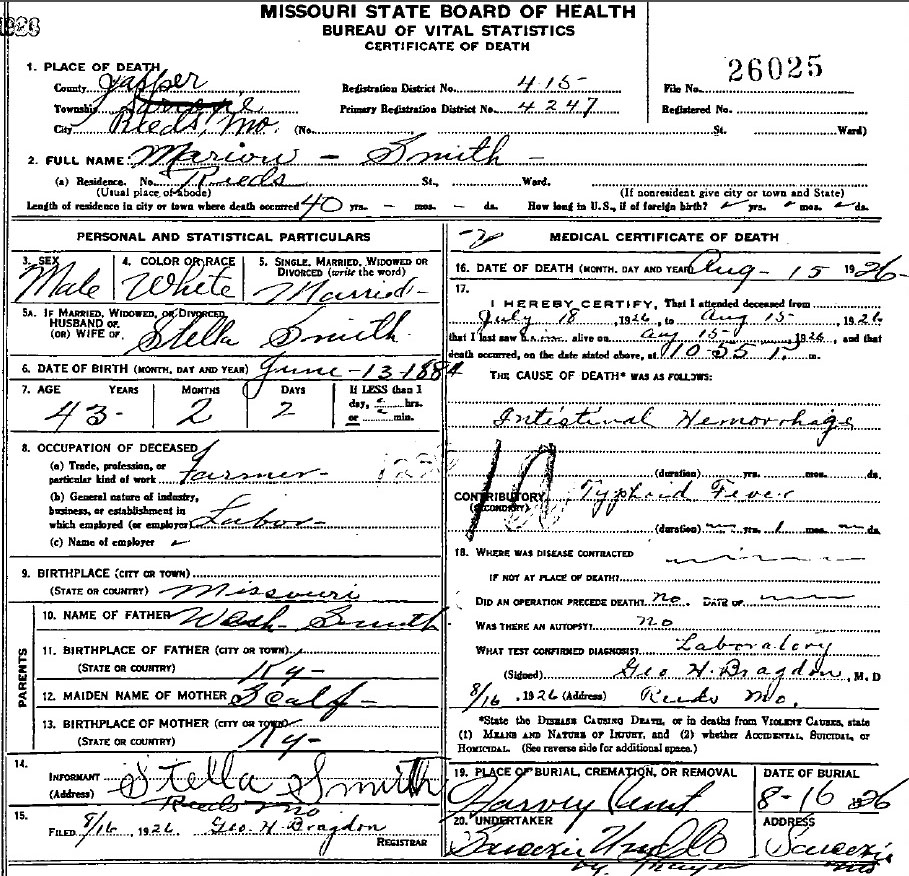 MISSOURI STATE BOARD OF HEALTH
BUREAU OF VITAL STATISTICS
CERTIFICATE OF DEATH
1. PLACE OF DEATH
County Jasper Registration District No. 415 File No. 26025
Township Primary Registration District No. 4247 Registered No.
City Reeds, Mo. (No. St. Ward)
2. FULL NAME Marion - Smith -
(a) Residence. No. Reeds St., Ward.
(Usual place of abode) (If nonresident give city or town and State)
Length of residence in city or town where death occurred 40 yrs. - mos. - ds. How long in U.S., if of foreign birth? yrs. mos. ds.
PERSONAL AND STATISTICAL PARTICULARS
3. SEX 4. COLOR OR RACE 5. SINGLE, MARRIED, WIDOWED OR DIVORCED (write the word)
Male White Married
5A. IF MARRIED, WIDOWED, OR DIVORCED
HUSBAND OF
(OR) WIFE OF Stella Smith
6. DATE OF BIRTH (MONTH, DAY AND YEAR) June-13-1884
7. AGE YEARS MONTHS DAYS If LESS than 1 day, hrs. or min.
43- 2 2
8. OCCUPATION OF DECEASED
(a) Trade, profession, or
particular kind of work Farmer
(b) General nature of industry,
business, or establishment in
which employed (or employer) Labor
(c) Name of employer
9. BIRTHPLACE (CITY OR TOWN)
(STATE OR COUNTRY) Missouri
PARENTS
10. NAME OF FATHER Wash. Smith
11. BIRTHPLACE OF FATHER (CITY OR TOWN)
(STATE OR COUNTRY) Ky-
12. MAIDEN NAME OF MOTHER Scalf-
13. BIRTHPLACE OF MOTHER (CITY OR TOWN)
(STATE OR COUNTRY) Ky-
14.
INFORMANT Stella Smith
(Address) Reeds Mo
15.
FILED 8/16, 1926 Geo. H. Bragdon
REGISTRAR
MEDICAL CERTIFICATE OF DEATH
16. DATE OF DEATH (MONTH, DAY AND YEAR) Aug- 15 1926-
17.
I HEREBY CERTIFY, That I attended deceased from
July 18, 1926, to Aug 15-, 1926
that I last saw him alive on Aug 15- 1926, and that
death occurred, on the date stated above, at 10-55 P. m.
THE CAUSE OF DEATH* WAS AS FOLLOWS:
Intistinal Hemorrhage
(duration) yrs. mos. ds.
CONTRIBUTORY Typhoid Fever
(SECONDARY)
(duration) yrs. 1 mos. ds.
18. WHERE WAS DISEASE CONTRACTED
IF NOT AT PLACE OF DEATH?
DID AN OPERATION PRECEDE DEATH? no. DATE OF
WAS THERE AN AUTOPSY? no
WHAT TEST CONFIRMED DIAGNOSIS? Laboratory
(Signed) Geo H. Bragdon, M. D
8/16, 1926 (Address) Reeds Mo.
*State the DISEASE CAUSING DEATH, or in deaths from VIOLENT CAUSES, state
(1) MEANS AND NATURE OF INJURY, and (2) whether ACCIDENTAL, SUICIDAL, or
HOMICIDAL. (See reverse side for additional space.)
19. PLACE OF BURIAL, CREMATION, OR REMOVAL DATE OF BURIAL
Harvey 8-16 26
20. UNDERTAKER ADDRESS